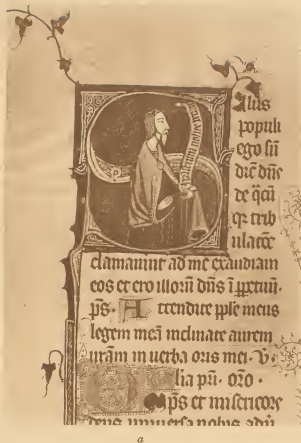 Salus
populi
ego sū
dic̄ dn̄s
de q̄cū
qꝫ trib
ulacōe
clamauint ad me exaudiam
eos et ero illorū dn̄s ī ꝑpetuū.
ps. Attendite pple meus
legem meā inclinate aurem
ur̄am in uerba oris mei. V.
Glia pri. oro.
Omps et misericors
deus uniuersa nobis adu
a